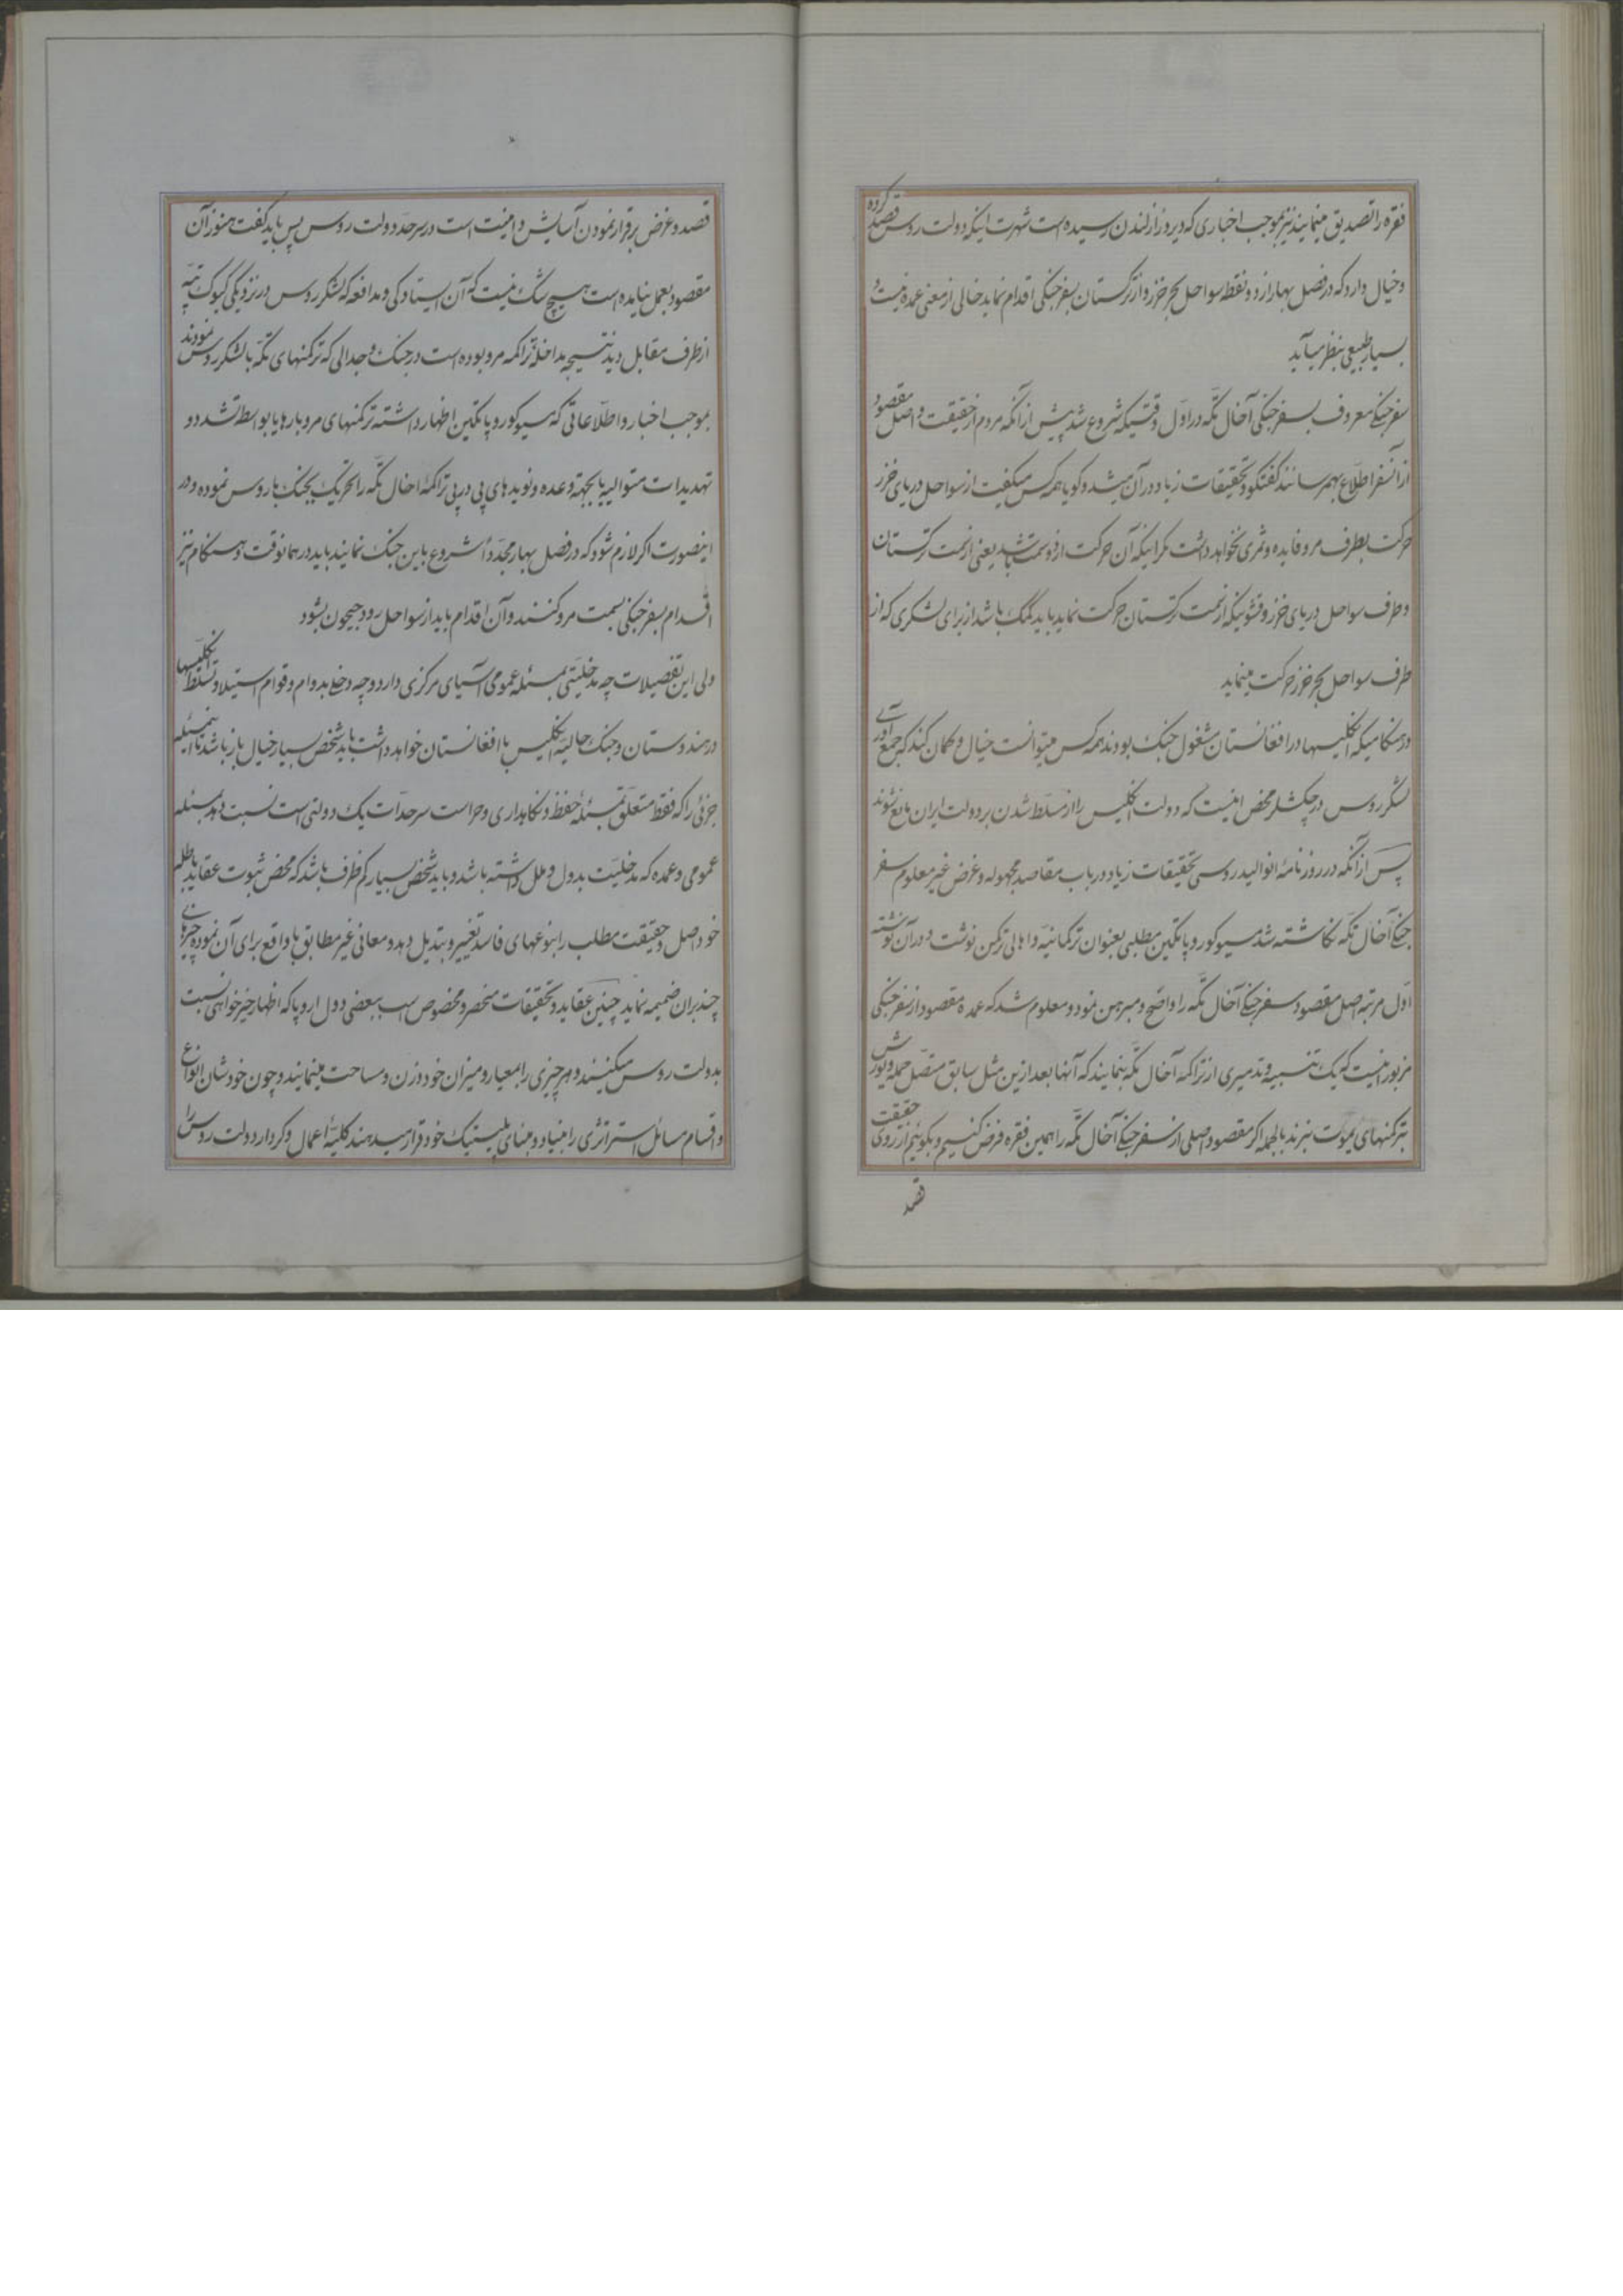 فقره را تصدیق مینمایند نیز بموجب اخباری که دیروز از لندن رسیده است شهرت اینکه دولت روس قصد کرده
و خیال دارد که در فصل بهار از دو نقطه سواحل بحر خزر و از ترکستان بسفر جنگی اقدام نماید خالی از معنی عمده نیست و
بسیار طبیعی بنظر میآید
سفر جنگی معروف بسفر جنگی آخال تکّه در اوّل وقتیکه شروع شد پیش از آنکه مردم از حقیقت و اصل مقصود
از آنسفر اطلاع بهمرسانند گفتگو و تحقیقات زیاد در آن میشد و گویا همه کس میگفت از سواحل دریای خزر
حرکت بطرف مرو فایده و ثمری نخواهد داشت مگر اینکه آن حرکت از دو سمت باشد یعنی از سمت ترکستان
و طرف سواحل دریای خزر و قشونیکه از سمت ترکستان حرکت نماید باید کمک باشد از برای لشکری که از
طرف سواحل بحر خزر حرکت مینماید
در هنگامیکه انگلیسها در افغانستان مشغول جنگ بودند همه کس میتوانست خیال و گمان کند که جمع آوری
لشکر روس در چکشلر محض اینست که دولت انگلیس را از مسلّط شدن بر دولت ایران مانع شوند
پس از آنکه در روزنامهٔ انوالید روسی تحقیقات زیاد در باب مقاصد مجهوله و غرض غیر معلوم سفر
جنگی آخال تکّه نگاشته شد مسیو کوروپاتکین مطلبی بعنوان ترکمانیّه و اهالی ترکمن نوشت و در آن نوشته
اوّل مرتبه اصل مقصود سفر جنگی آخال تکّه را واضح و مبرهن نمود و معلوم شد که عمده مقصود از سفر جنگی
مزبور اینست که یک تنبیه و تدمیری از تراکمهٔ آخال تکّه بنمایند که آنها بعد ازین مثل سابق متصّل حمله و یورش
بترکمنهای یموت نبرند بالجمله اگر مقصود اصلی از سفر جنگی آخال تکّه را همین فقره فرض کنیم و بگوئیم از روی حقیقت
قصد
قصد و غرض برقرار نمودن آسایش و امنیت است در سرحدّ دولت روس پس باید گفت هنوز آن
مقصود بعمل نیامده است هیچ شک نیست که آن ایستادگی و مدافعه که لشکر روس در نزدیکی گوک تپّه
از طرف مقابل دید نتیجه مداخلهٔ تراکمه مرو بوده است در جنگ و جدالی که ترکمنهای تکّه با لشکر روس نمودند
بموجب اخبار و اطّلاعاتی که مسیو کوروپاتکین اظهار داشته ترکمنهای مرو بارها یا بواسطه تشدد و
تهدیدات متوالیه یا بجهة وعده و نویدهای پی در پی تراکمهٔ اخال تکّه را تحریک بجنگ با روس نموده و در
اینصورت اگر لازم شود که در فصل بهار مجدّداً شروع باین جنگ نمایند باید در همانوقت و هنگام نیز
اقدام بسفر جنگی بسمت مرو کنند و آن اقدام باید از سواحل رود جیحون بشود
ولی این تفصیلات چه مدخلیّتی بمسئله عمومی آسیای مرکزی دارد و چه دخلی بدوام و قوام استیلا و تسلّط انگلیسها
در هندوستان و جنگ حالیّه انگلیس با افغانستان خواهد داشت باید شخص بسیار خیال باز باشد تا این مسئله
جزئی را که فقط متعلّق بمسئلهٔ حفظ و نگاهداری و حراست سرحدّات یک دولتی است نسبت دهد بمسئله
عمومی و عمده که مدخلیّت بدول و ملل داشته باشد و باید شخص بسیار کم ظرف باشد که محض ثبوت عقاید باطله
خود اصل و حقیقت مطلب را بنوعهای فاسد تغییر و تبدیل دهد و معانی غیر مطابق با واقع برای آن نموده چیزهای
چند بران ضمیمه نماید چنین عقاید و تحقیقات منحصر و مخصوص است ببعضی دول اروپا که اظهار خیرخواهی نسبت
بدولت روس میکنند و هر چیزی را بمعیار و میزان خود وزن و مساحت مینمایند و چون خودشان انواع
و اقسام مسائل استراتژی را بنیاد و مبنای پلیتیک خود قرار میدهند کلیّهٔ اعمال و کردار دولت روس را